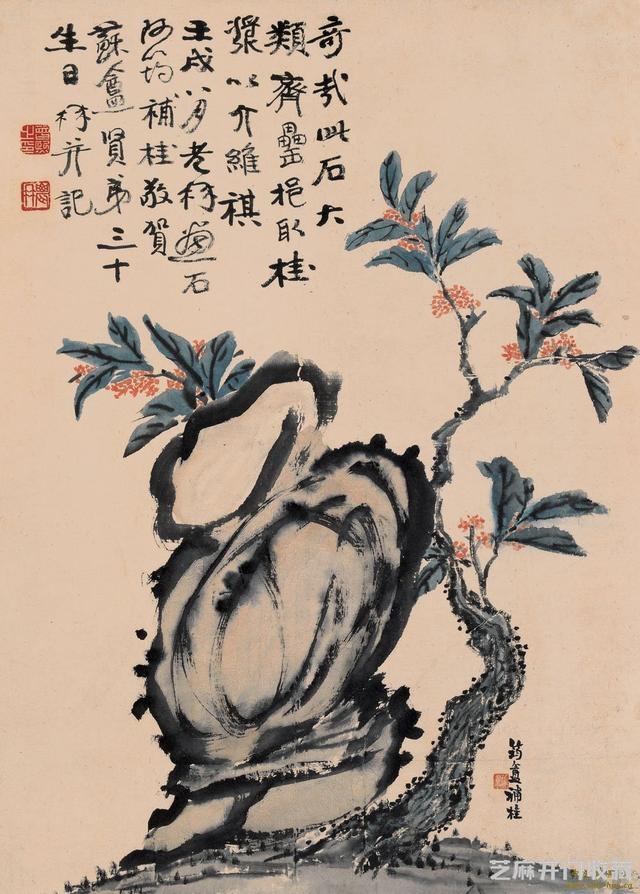 奇哉此石大
類齊罍挹取桂
漿以介維祺
壬戌八月老髯畫石
阿筠補桂敬賀
蘇盦賢弟三十
生日髯并記
筠盦補桂
芝麻开门收藏